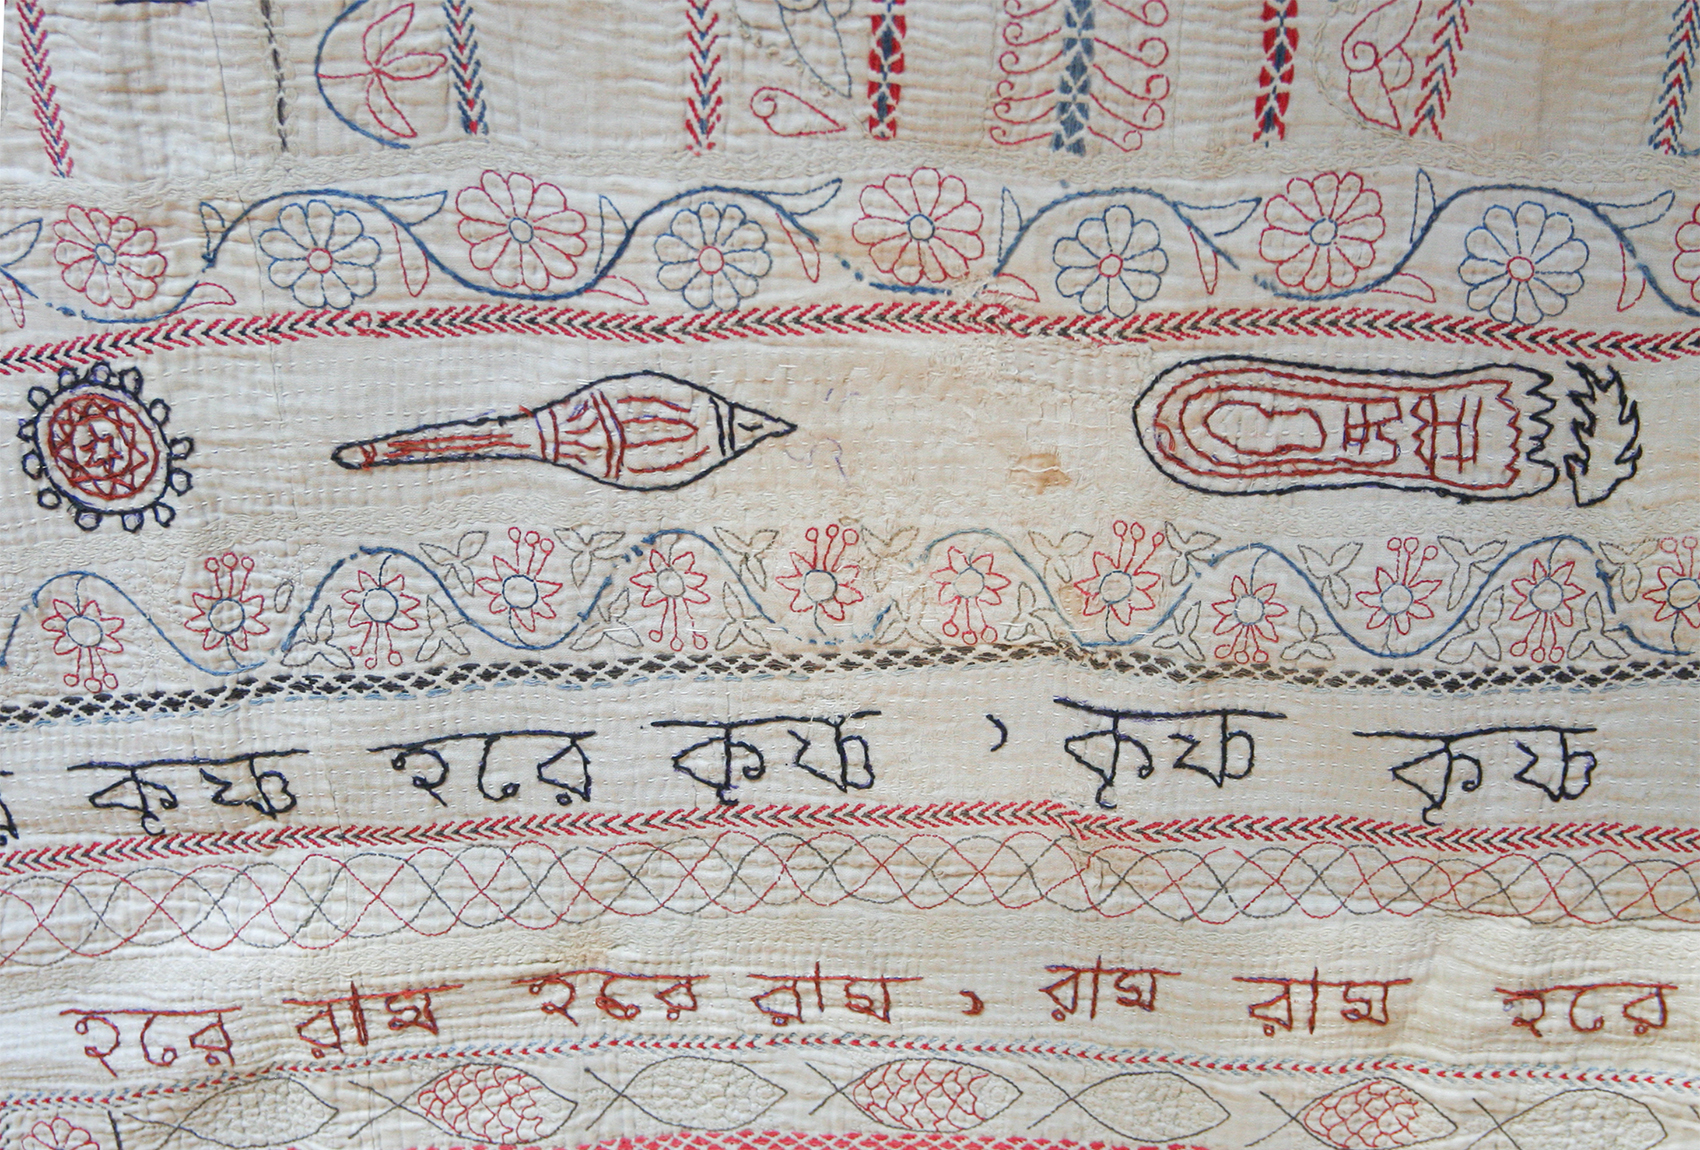 কৃষ্ণ হরে কৃষ্ণ , কৃষ্ণ কৃষ্ণ
হরে রাম হরে রাম , রাম রাম হরে